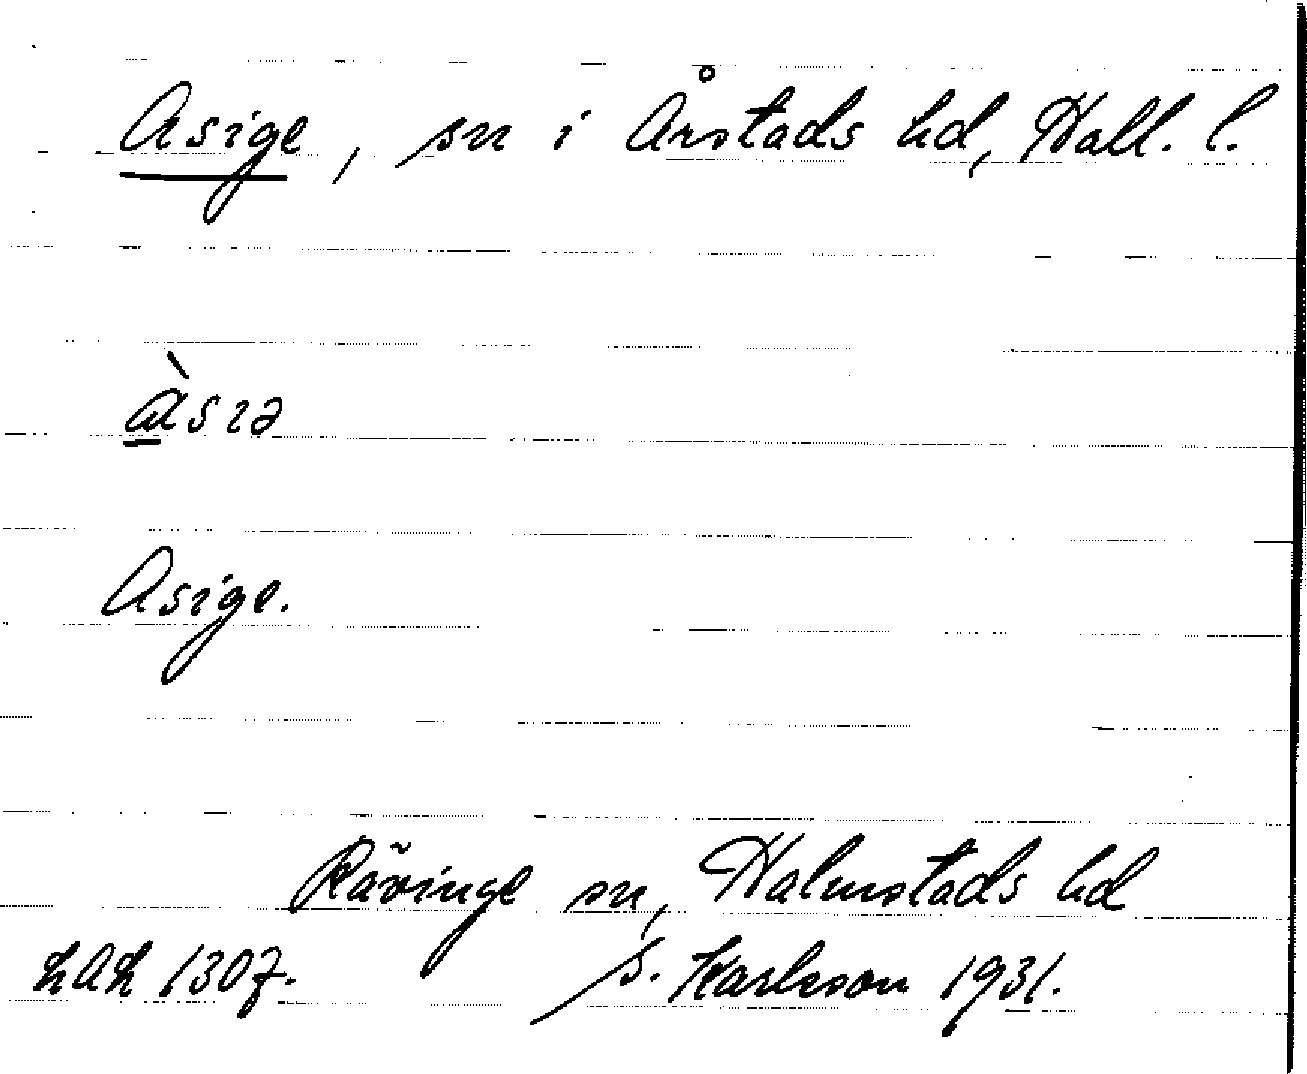 Asige, sn i Årstads hd, Hall. l.
àsıə
Asige.
Rävinge sn, Halmstads hd
LAL 1307. S. Karlsson 1931.